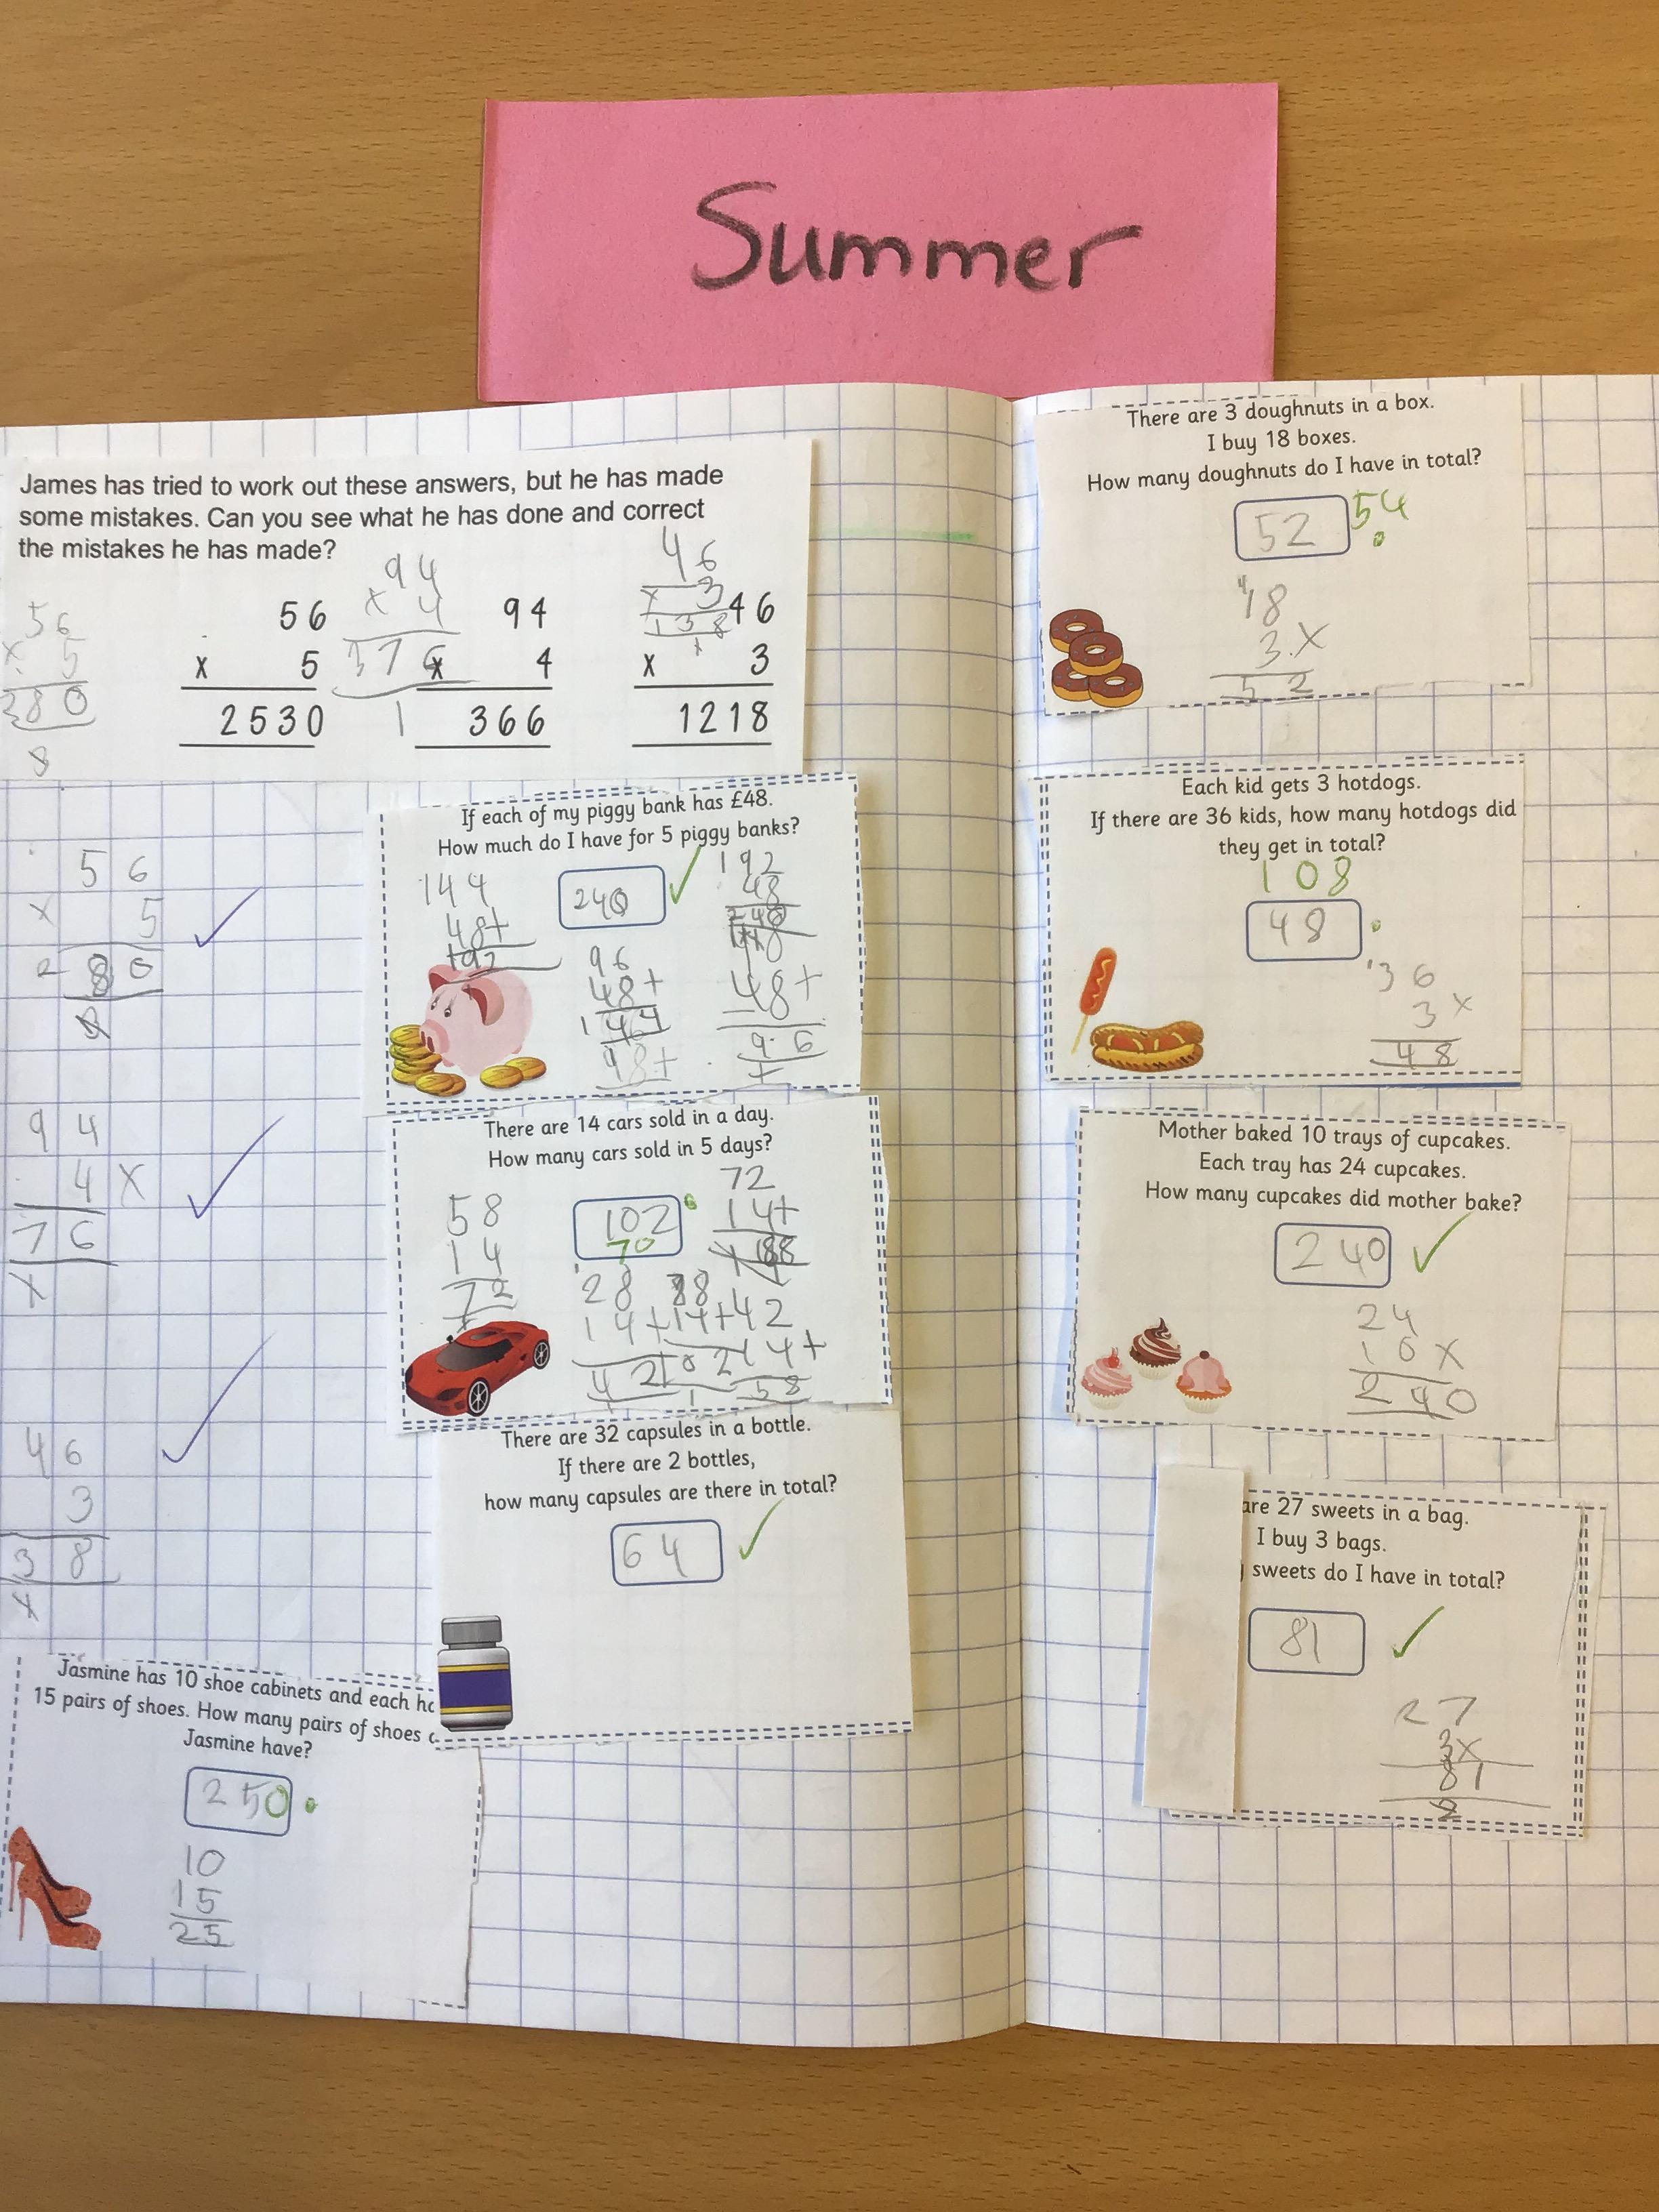 Summer
James has tried to work out these answers, but he has made
some mistakes. Can you see what he has done and correct
the mistakes he has made?
56
x 5
280
8
56
x 5
2530
94
x 4
376
1
94
x 4
366
46
x 3
138
1
46
x 3
1218
56
x 5
280
94
4 x
76
46
3
38
If each of my piggy bank has £48.
How much do I have for 5 piggy banks?
240
144
48+
192
96
48+
144
48+
192
48
240
48+
96
There are 14 cars sold in a day.
How many cars sold in 5 days?
102
70
58
14
72
72
14+
28
14+
42
42
14+
58
There are 32 capsules in a bottle.
If there are 2 bottles,
how many capsules are there in total?
64
Jasmine has 10 shoe cabinets and each
15 pairs of shoes. How many pairs of shoes
Jasmine have?
250
10
15
25
There are 3 doughnuts in a box.
I buy 18 boxes.
How many doughnuts do I have in total?
52 54
18
3 x
52
Each kid gets 3 hotdogs.
If there are 36 kids, how many hotdogs did
they get in total?
108
48
36
3 x
48
Mother baked 10 trays of cupcakes.
Each tray has 24 cupcakes.
How many cupcakes did mother bake?
240
24
10 x
240
are 27 sweets in a bag.
I buy 3 bags.
sweets do I have in total?
81
27
3x
81
2